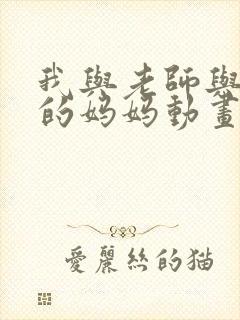 我與老師與
的媽媽動畫
愛麗絲的猫